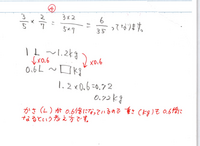 ④
3/5 × 2/7 = 3×2/5×7 = 6/35 っなります。
1L ~ 1.2kg
↓×0.6 ↓×0.6
0.6L ~ □kg
1.2×0.6=0.72
0.72kg
かさ(L)が0.6倍になっているため重さ(kg)も0.6倍に
なるという考え方です。